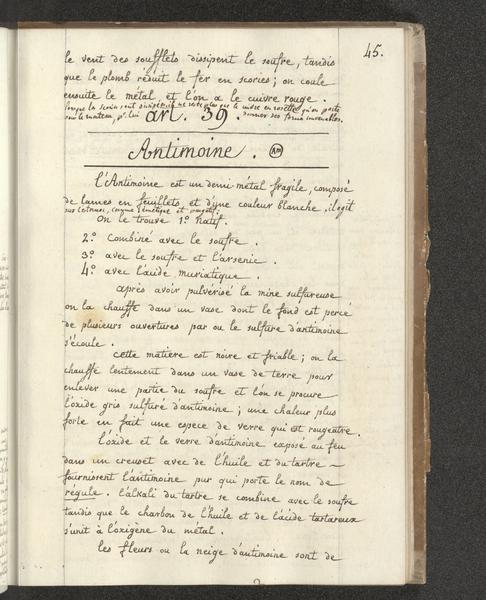 45.
le vent des soufflets dissipent le soufre, tandis
que le plomb réduit le fer en scories ; on coule
ensuite le métal, et l'on a le cuivre rouge.
lorsque la scorie sont il ne reste plus que le mettre en rosette qu'on porte
sous le marteau, pr. lui donner ses formes convenables.
art. 39.
Antimoine.
l'Antimoine est un demi-métal fragile, composé
de lames en feuillets, et d'une couleur blanche, il agit
sur l'estomac, comme émétique et purgatif.
On le trouve 1.º Natif.
2.º Combiné avec le soufre.
3.º avec le soufre et l'arsenic.
4.º avec l'acide muriatique.
après avoir pulvérisé la mine sulfureuse
on la chauffe dans un vase dont le fond est percé
de plusieurs ouvertures par ou le sulfure d'antimoine
s'écoule.
cette matière est noire et friable ; on la
chauffe lentement dans un vase de terre pour
enlever une partie du soufre et l'on se procure
l'oxide gris sulfuré d'antimoine ; une chaleur plus
forte en fait une espece de verre qui est rougeâtre.
l'oxide et le verre d'antimoine exposé au feu
dans un creuset avec de l'huile et du tartre ~
fournissent l'antimoine pur qui porte le nom de
régule. l'alkali du tartre se combine avec le soufre
tandis que le charbon de l'huile et de l'acide tartareux
s'unit à l'oxigène du métal.
les fleurs ou la neige d'antimoine sont de